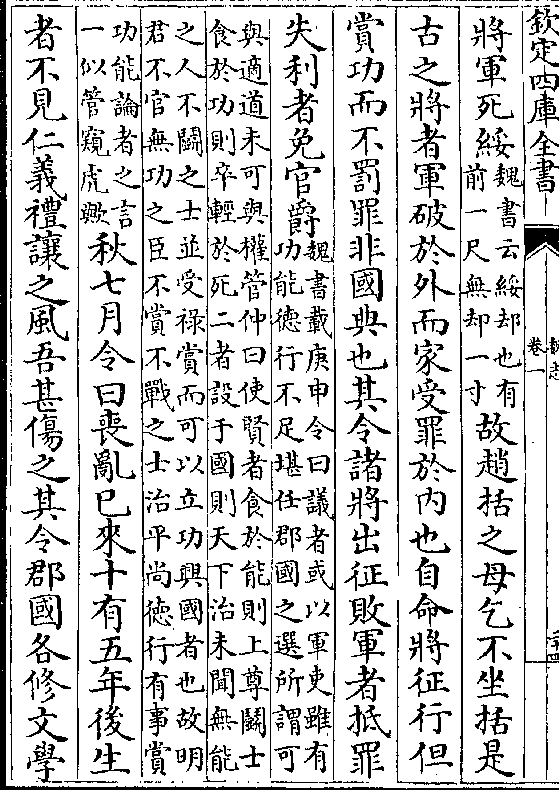 欽定四庫全書
卷一
將軍死綏
魏書云綏却也有
前一尺無却一寸
故趙括之母乞不坐括是
古之將者軍破於外而家受罪於内也自命將征行但
賞功而不罰罪非國典也其令諸將出征敗軍者抵罪
失利者免官爵
魏書載庚申令曰議者或以軍吏雖有
功能德行不足堪任郡國之選所謂可
與適道未可與權管仲曰使賢者食於能則上尊鬭士
食於功則卒輕於死二者設于國則天下治未聞無能
之人不鬭之士並受祿賞而可以立功興國者也故明
君不官無功之臣不賞不戰之士治平尚德行有事賞
功能論者之言
一似管窺虎歟
秋七月令曰喪亂已來十有五年後生
者不見仁義禮讓之風吾甚傷之其令郡國各修文學